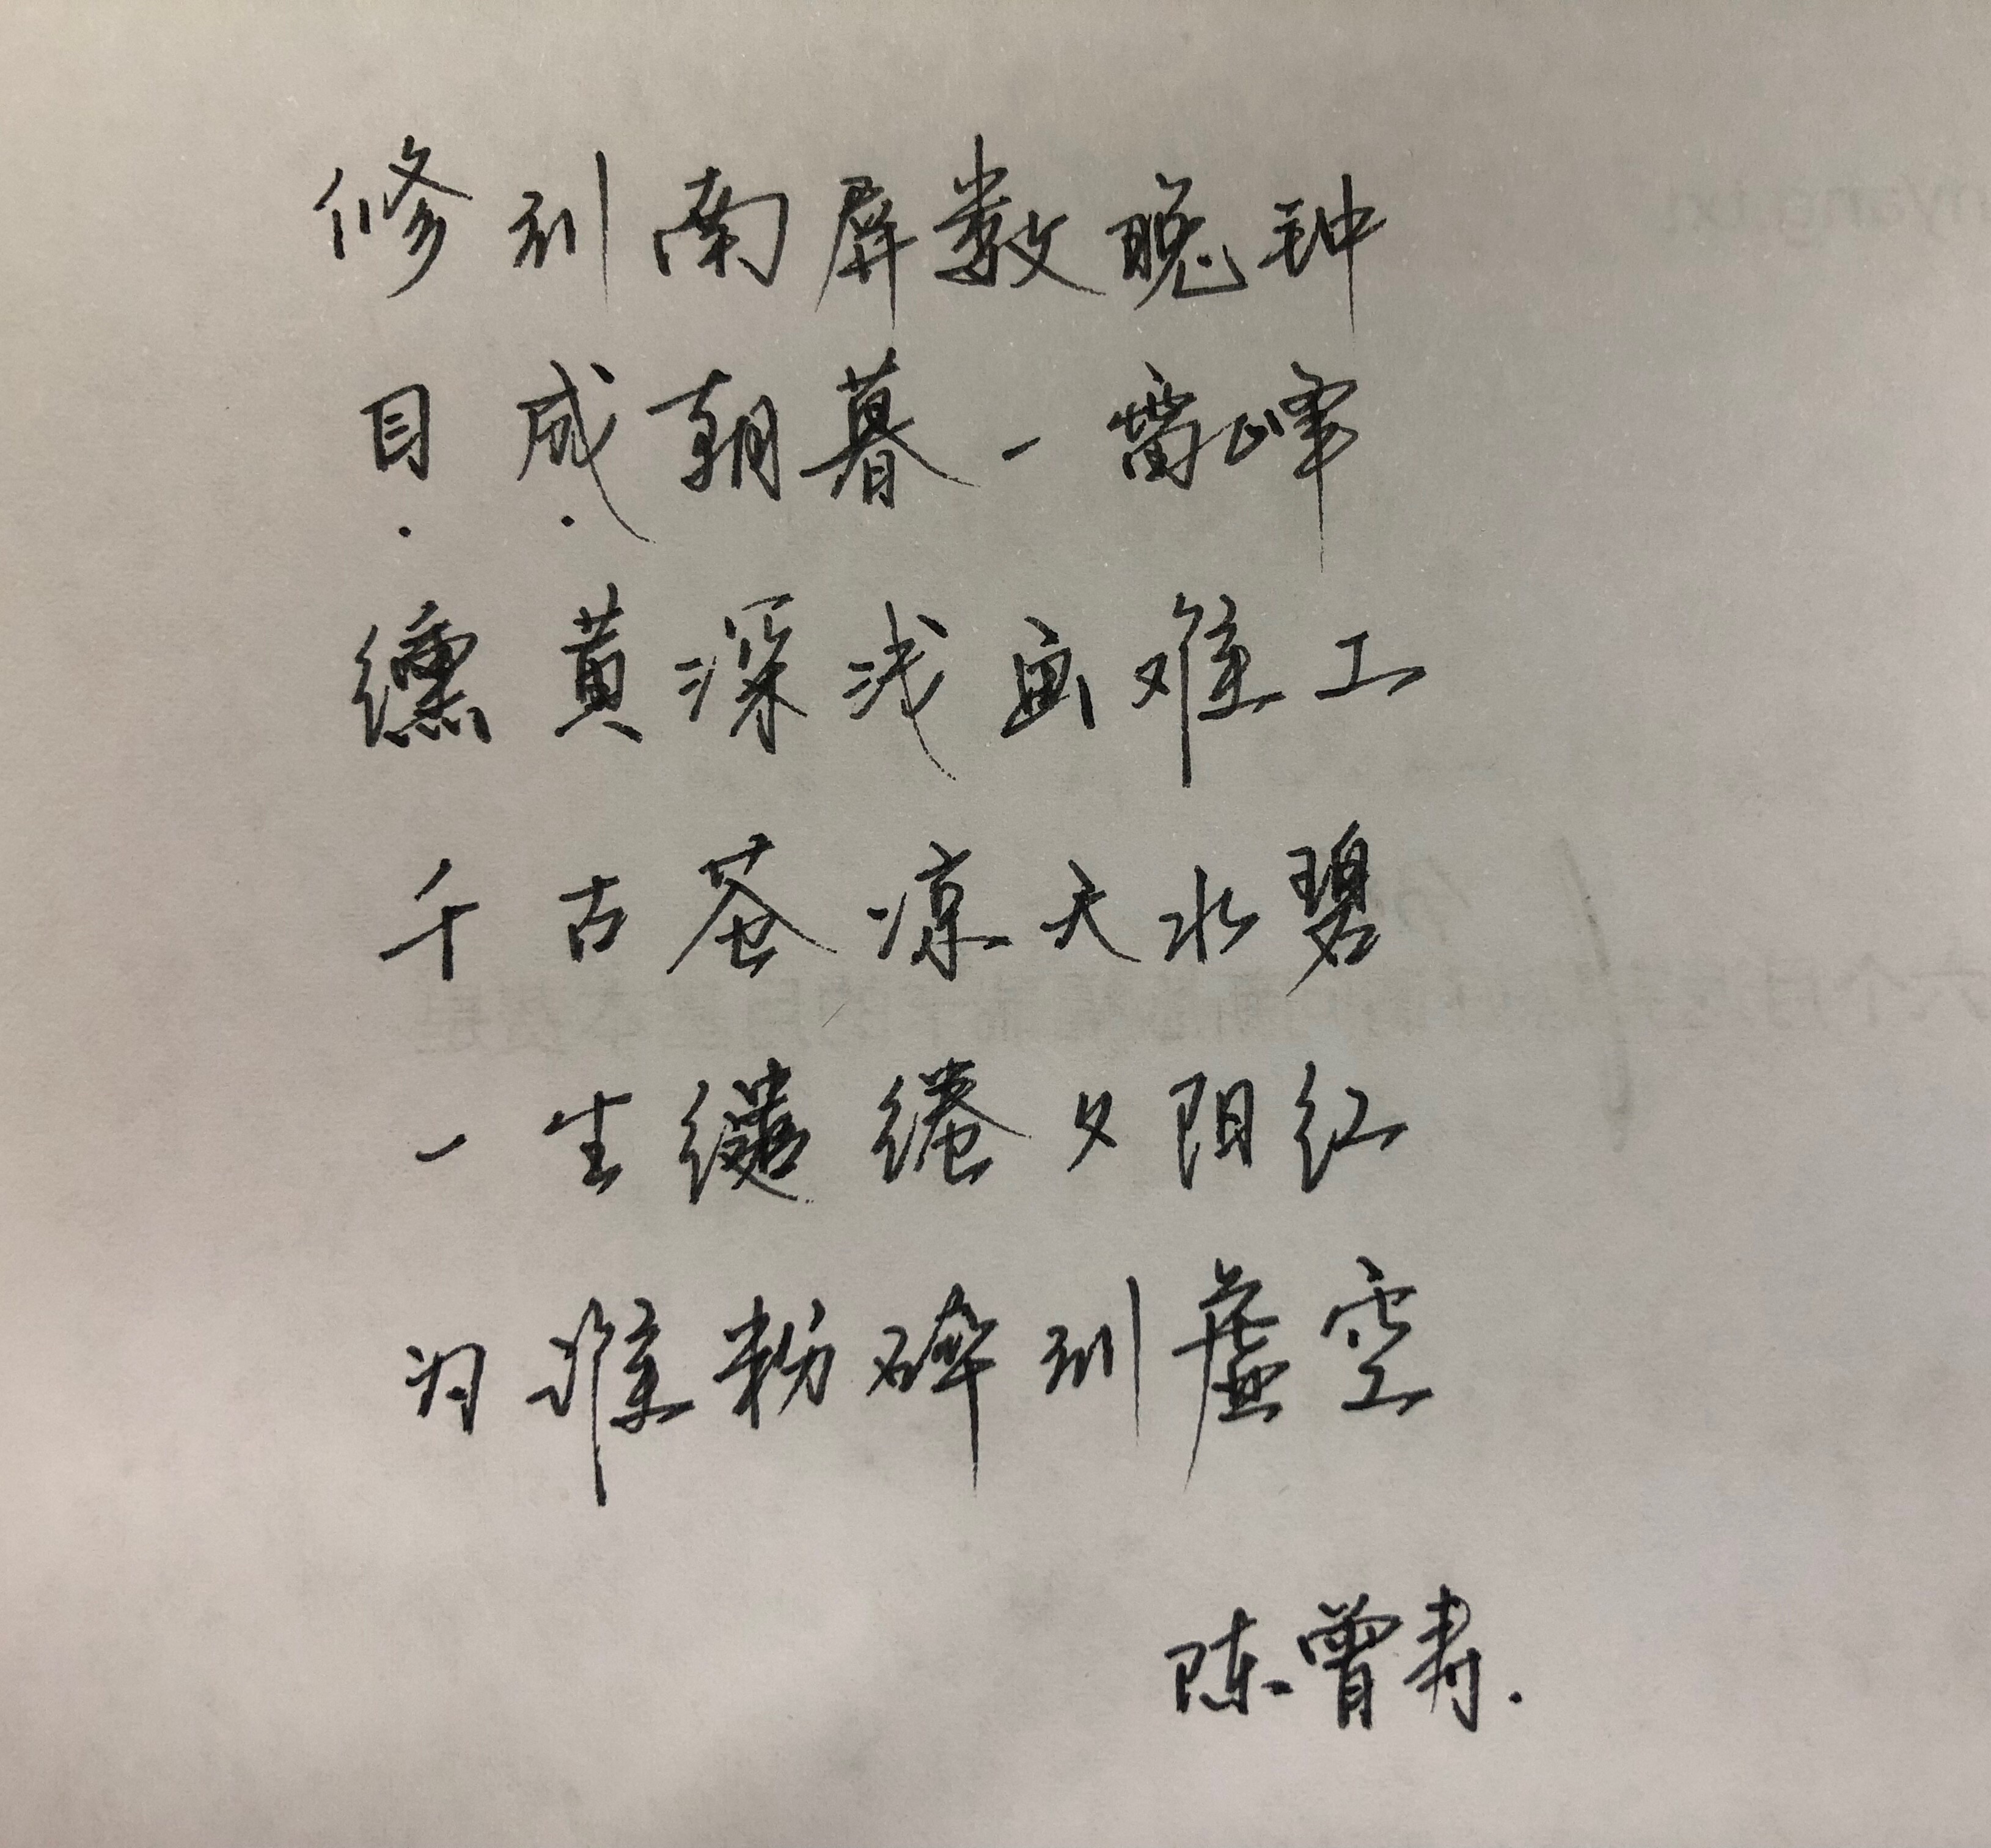 修到南屏数晚钟
目成朝暮一雷峰
纁黄深浅画难工
千古苍凉天水碧
一生缱绻夕阳红
为谁粉碎到虚空
陈曾寿.